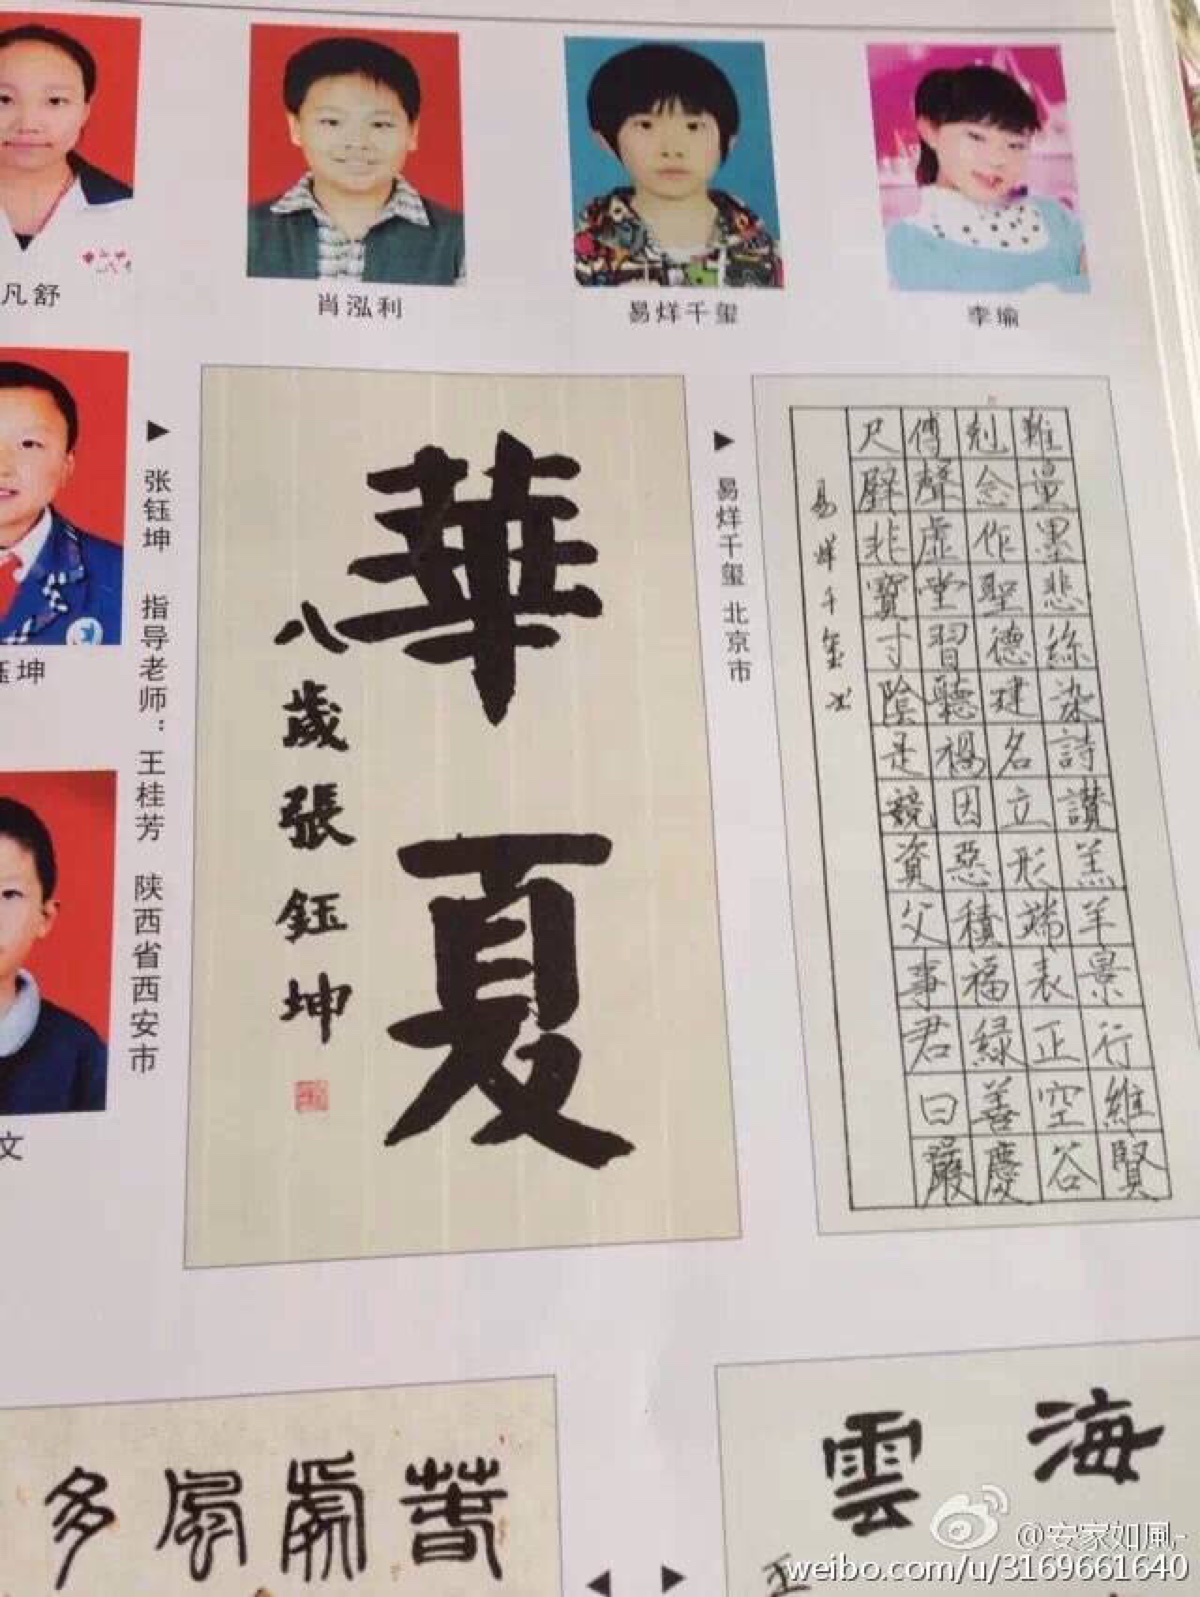 凡舒
肖泓利
易烊千玺
李瑜
钰坤
文
张钰坤 指导老师：王桂芳 陕西省西安市
華夏
八歲張鈺坤
易烊千玺 北京市
難量墨悲絲染詩讚羔羊景行維賢
剋念作聖德建名立形端表正空谷
傅聲虛堂習聽禍因惡積福緣善慶
尺璧非寶寸陰是競資父事君曰嚴
易烊千璽书
風多
海雲
@安家如風-
weibo.com/u/3169661640